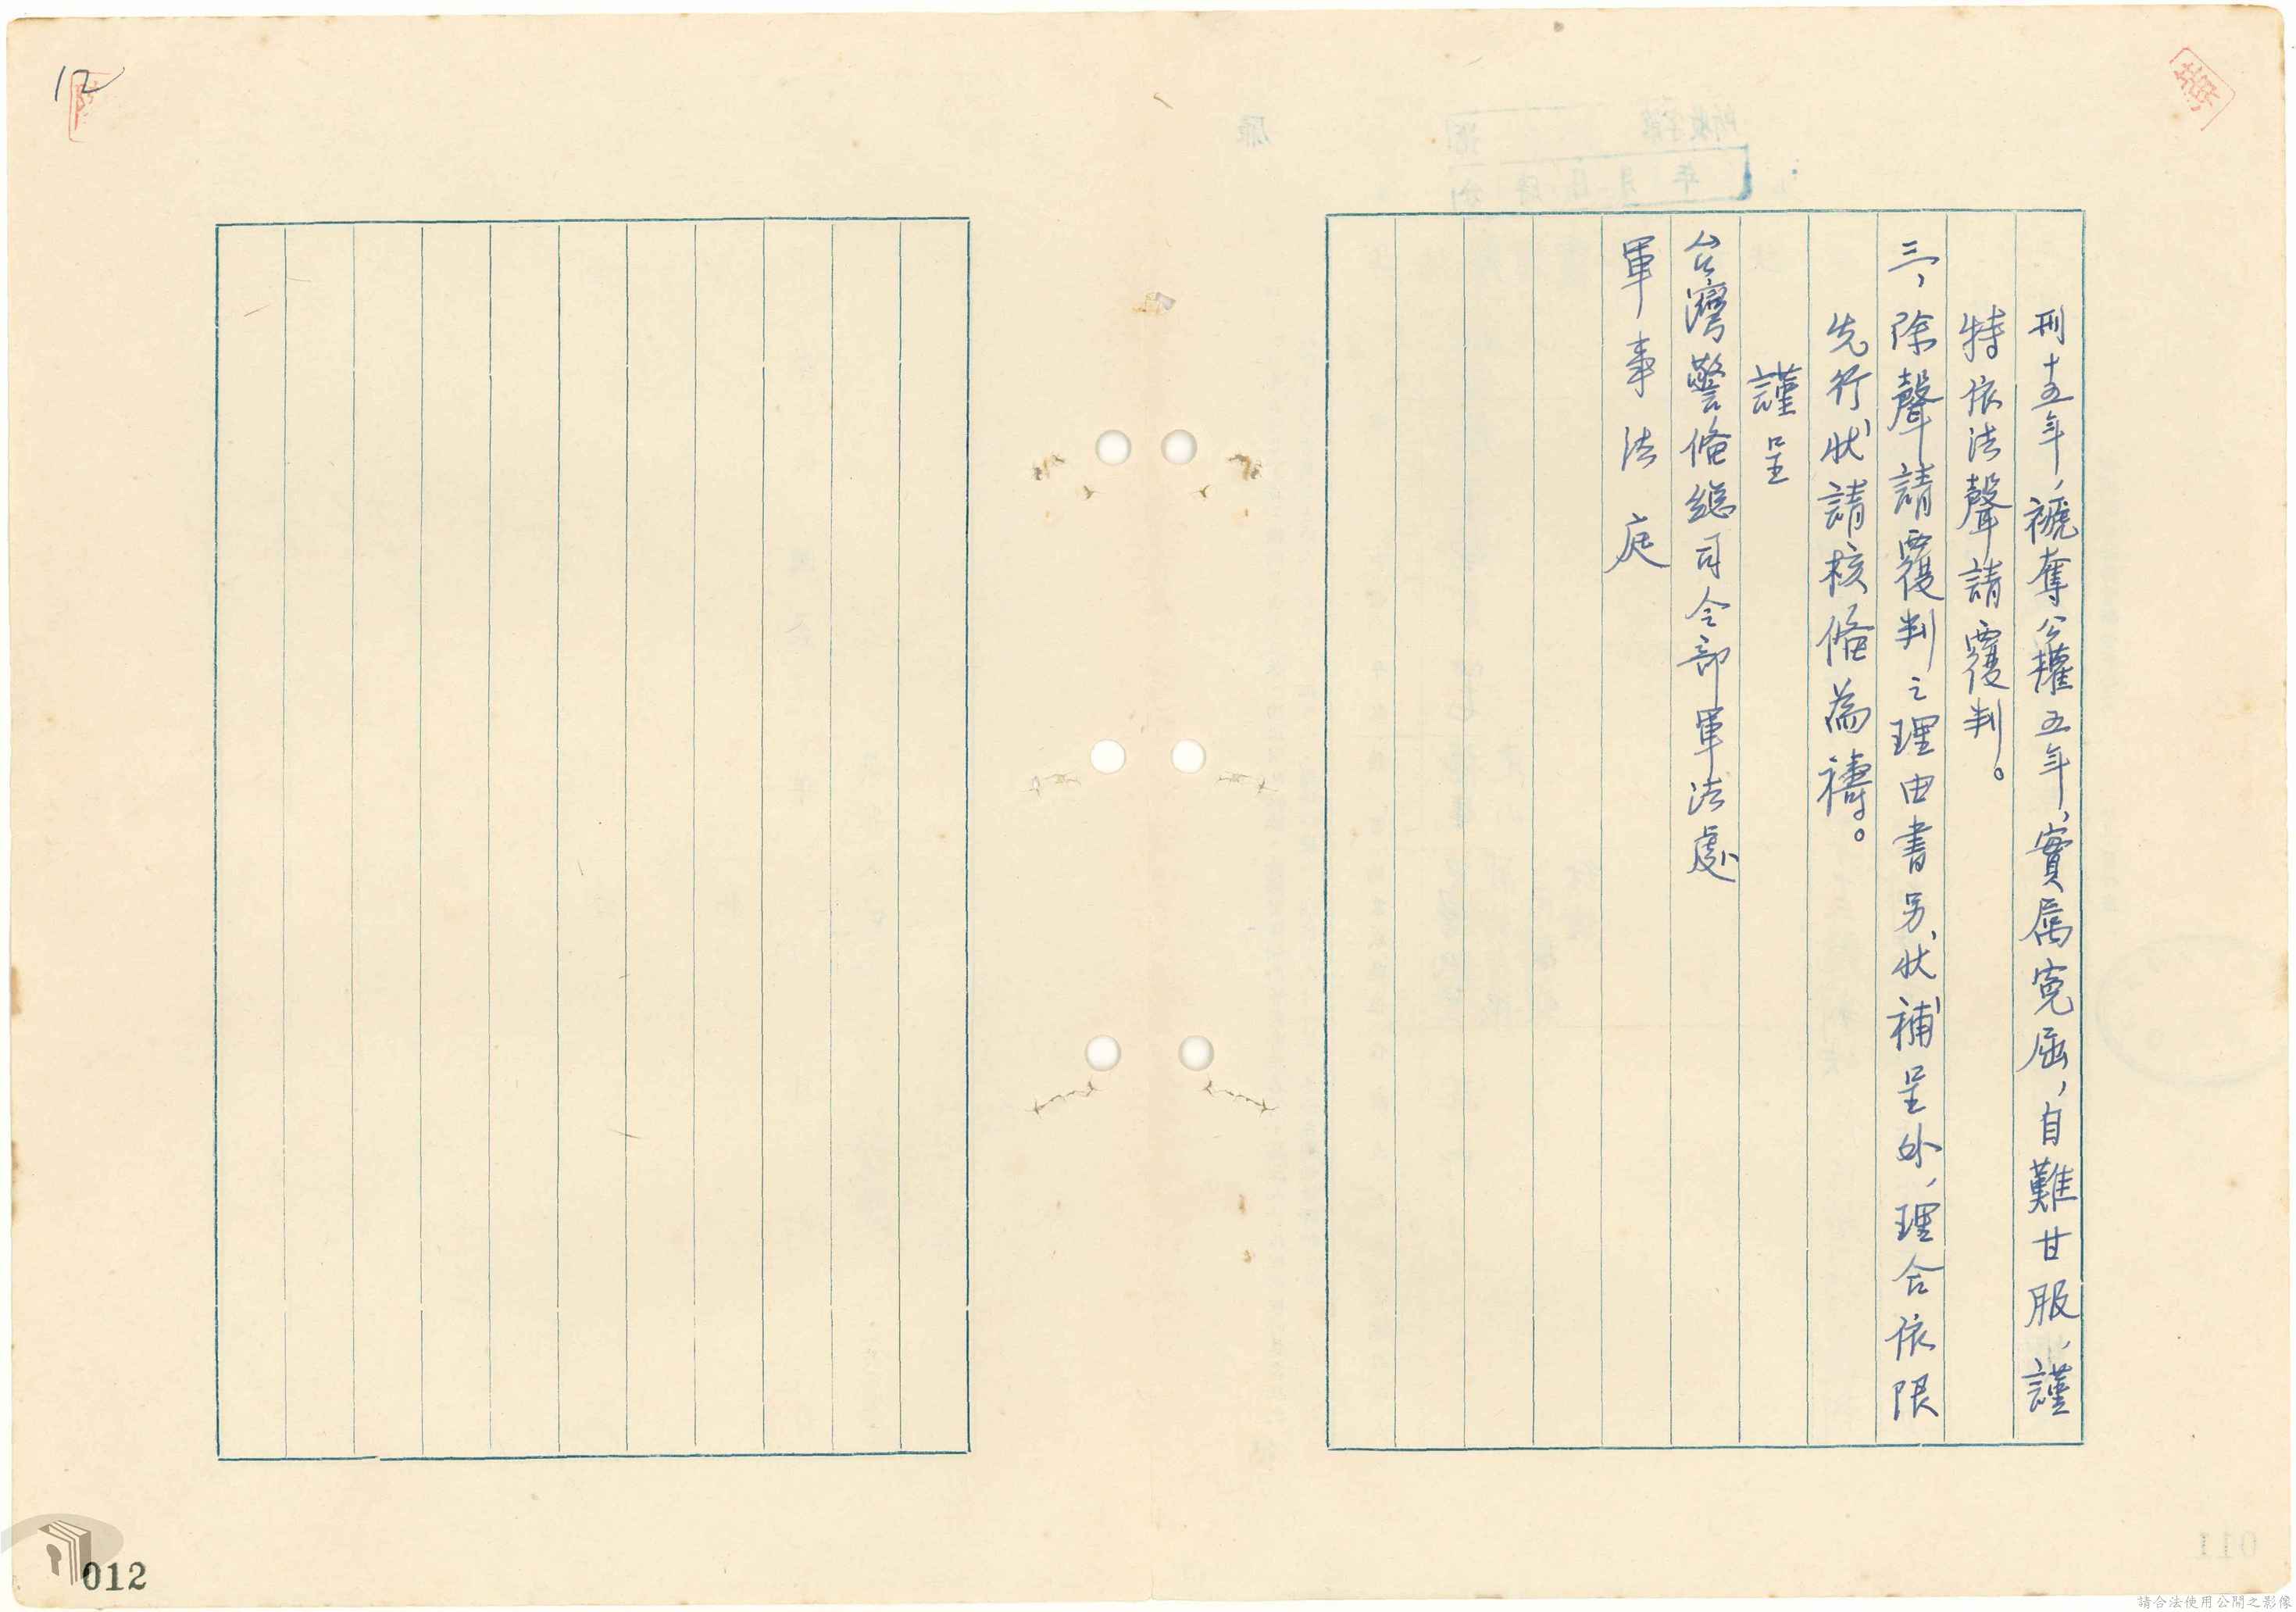 刑十五年，褫奪公權五年，實屬寃屈，自難甘服，謹
特依法聲請覆判。
三，除聲請覆判之理由書另狀補呈外，理合依限
先行狀請核俻為禱。
謹呈
台灣警俻總司令部軍法處
軍事法庭
12
012
請合法使用公開之影像